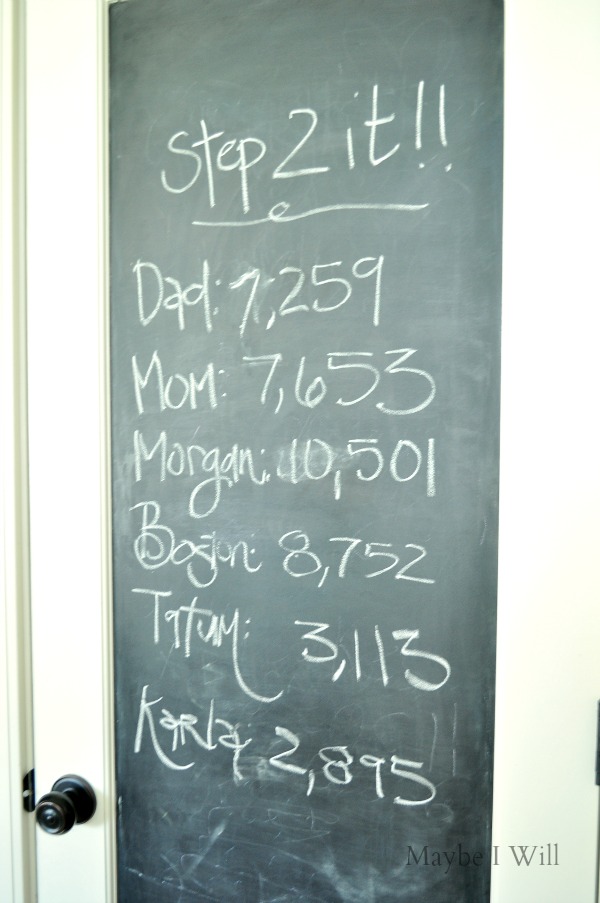 Step 2 it!!
Dad: 7,259
Mom: 7,653
Morgan: 10,501
Boston: 8,752
Tatum: 3,113
Karla: 2,895
Maybe I Will